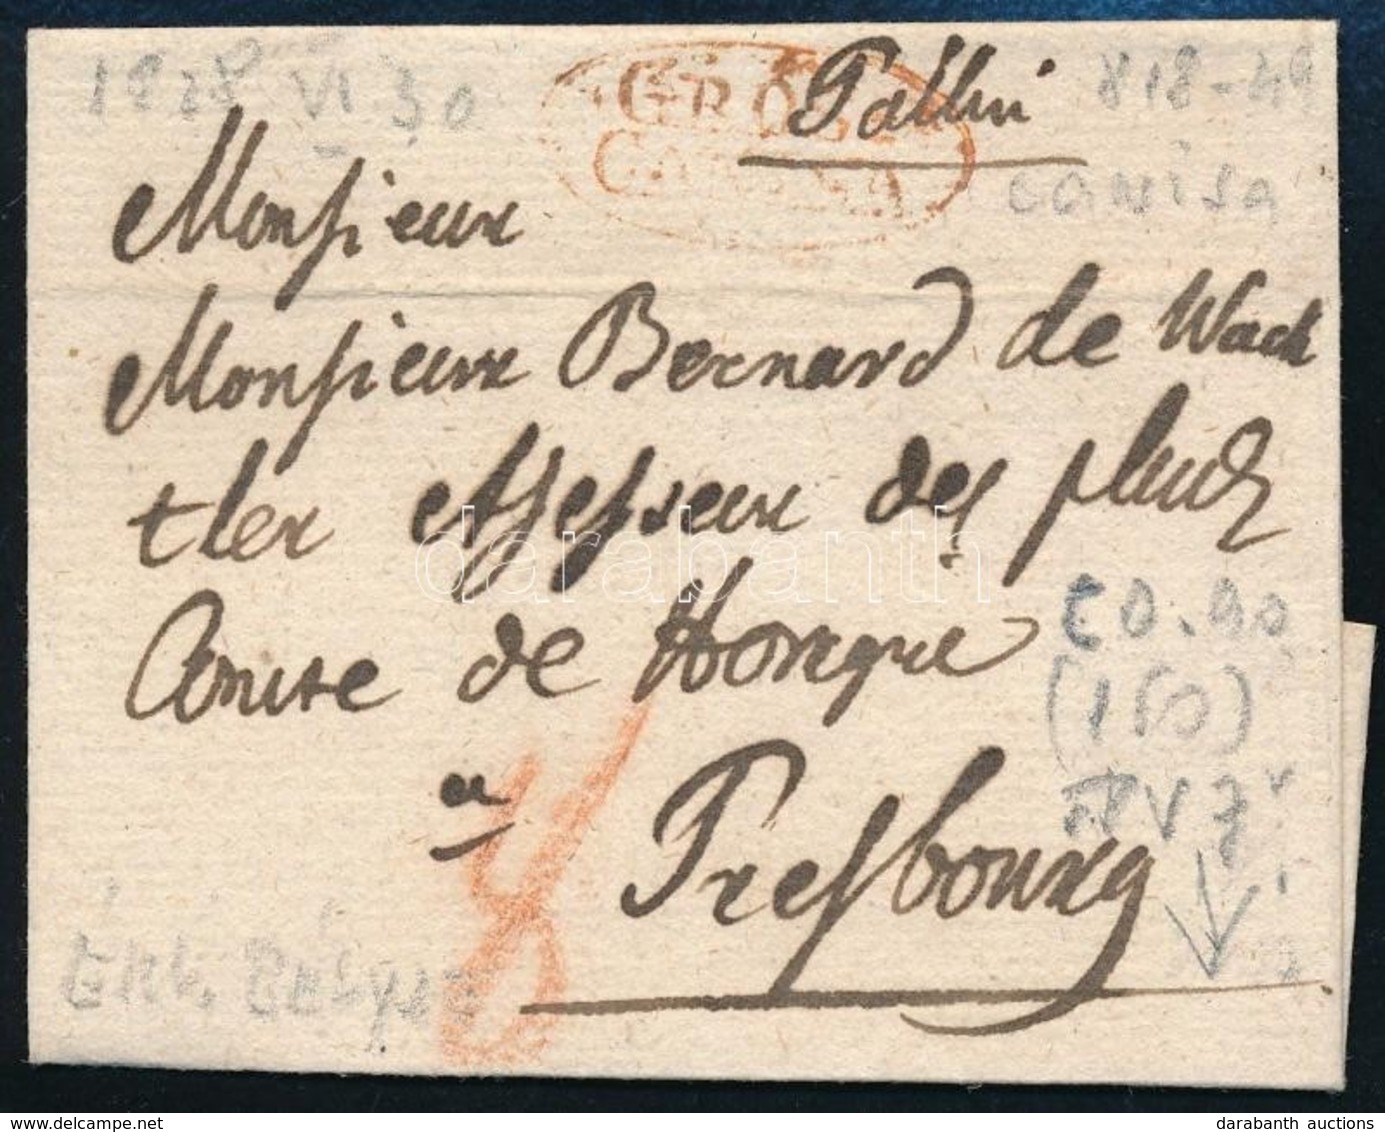 1828 VI 30
GROS
CANISA
Pallini
818-49
canisa
Monsieur
Monsieur Bernard de Wach
tler Assesseur des plus
Comte de Hongrie
a
Presbourg
darabanth
(150)
8
www.delcampe.net
darabanth auctions